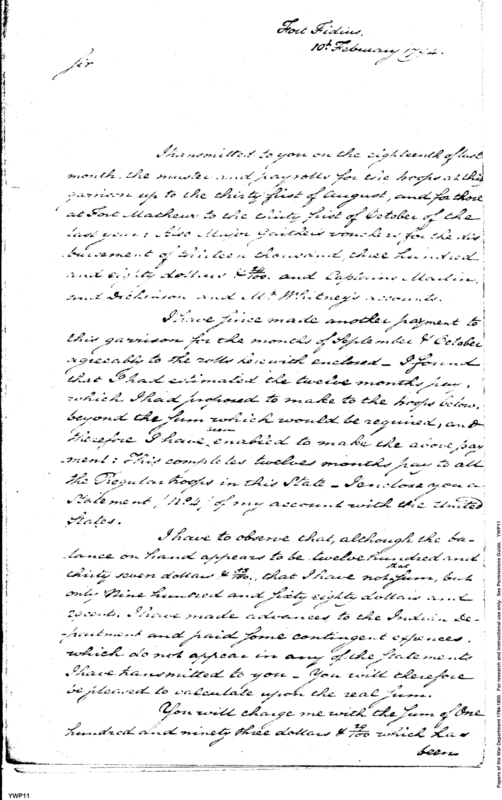 Fort Fidius,
10th February 1794.
Sir
I transmitted to you on the eighteenth of last
month, the muster and payrolls for the troops at this
garrison up to the thirty first of August, and for those
at Fort Mathews to the thirty first of October of the
last year: Also Major Gaither's vouchers for the dis
bursement of thirteen thousand, three hundred
and eighty dollars & /100. and Captains Martin
and Dickinson and Mr. Whitney's accounts.
I have since made another payment to
this garrison for the months of September & October
agreeably to the rolls herewith enclosed - I found
that I had estimated the twelve months pay,
which I had proposed to make to the troops below,
beyond the sum which would be required, and
therefore I have been enabled to make the above pay
ment: This completes twelves months pay to all
the Regular troops in this State - I enclose you a
Statement, of my account with the United
States.
I have to observe that, although the ba-
lance on hand appears to be twelve hundred and
thirty seven dollars & /100, that I have not that sum, but
only Nine hundred and sixty eight dollars and
cents. I have made advances to the Indian De-
partment and paid some contingent expences,
which do not appear in any of the statements
I have transmitted to you - You will therefore
be pleased to calculate upon the real sum.
You will charge me with the sum of One
hundred and ninety three dollars & /100 which has
been
YWP11
Papers of the War Department 1784-1800. For research and instructional use only. See Permissions Guide. YWP11